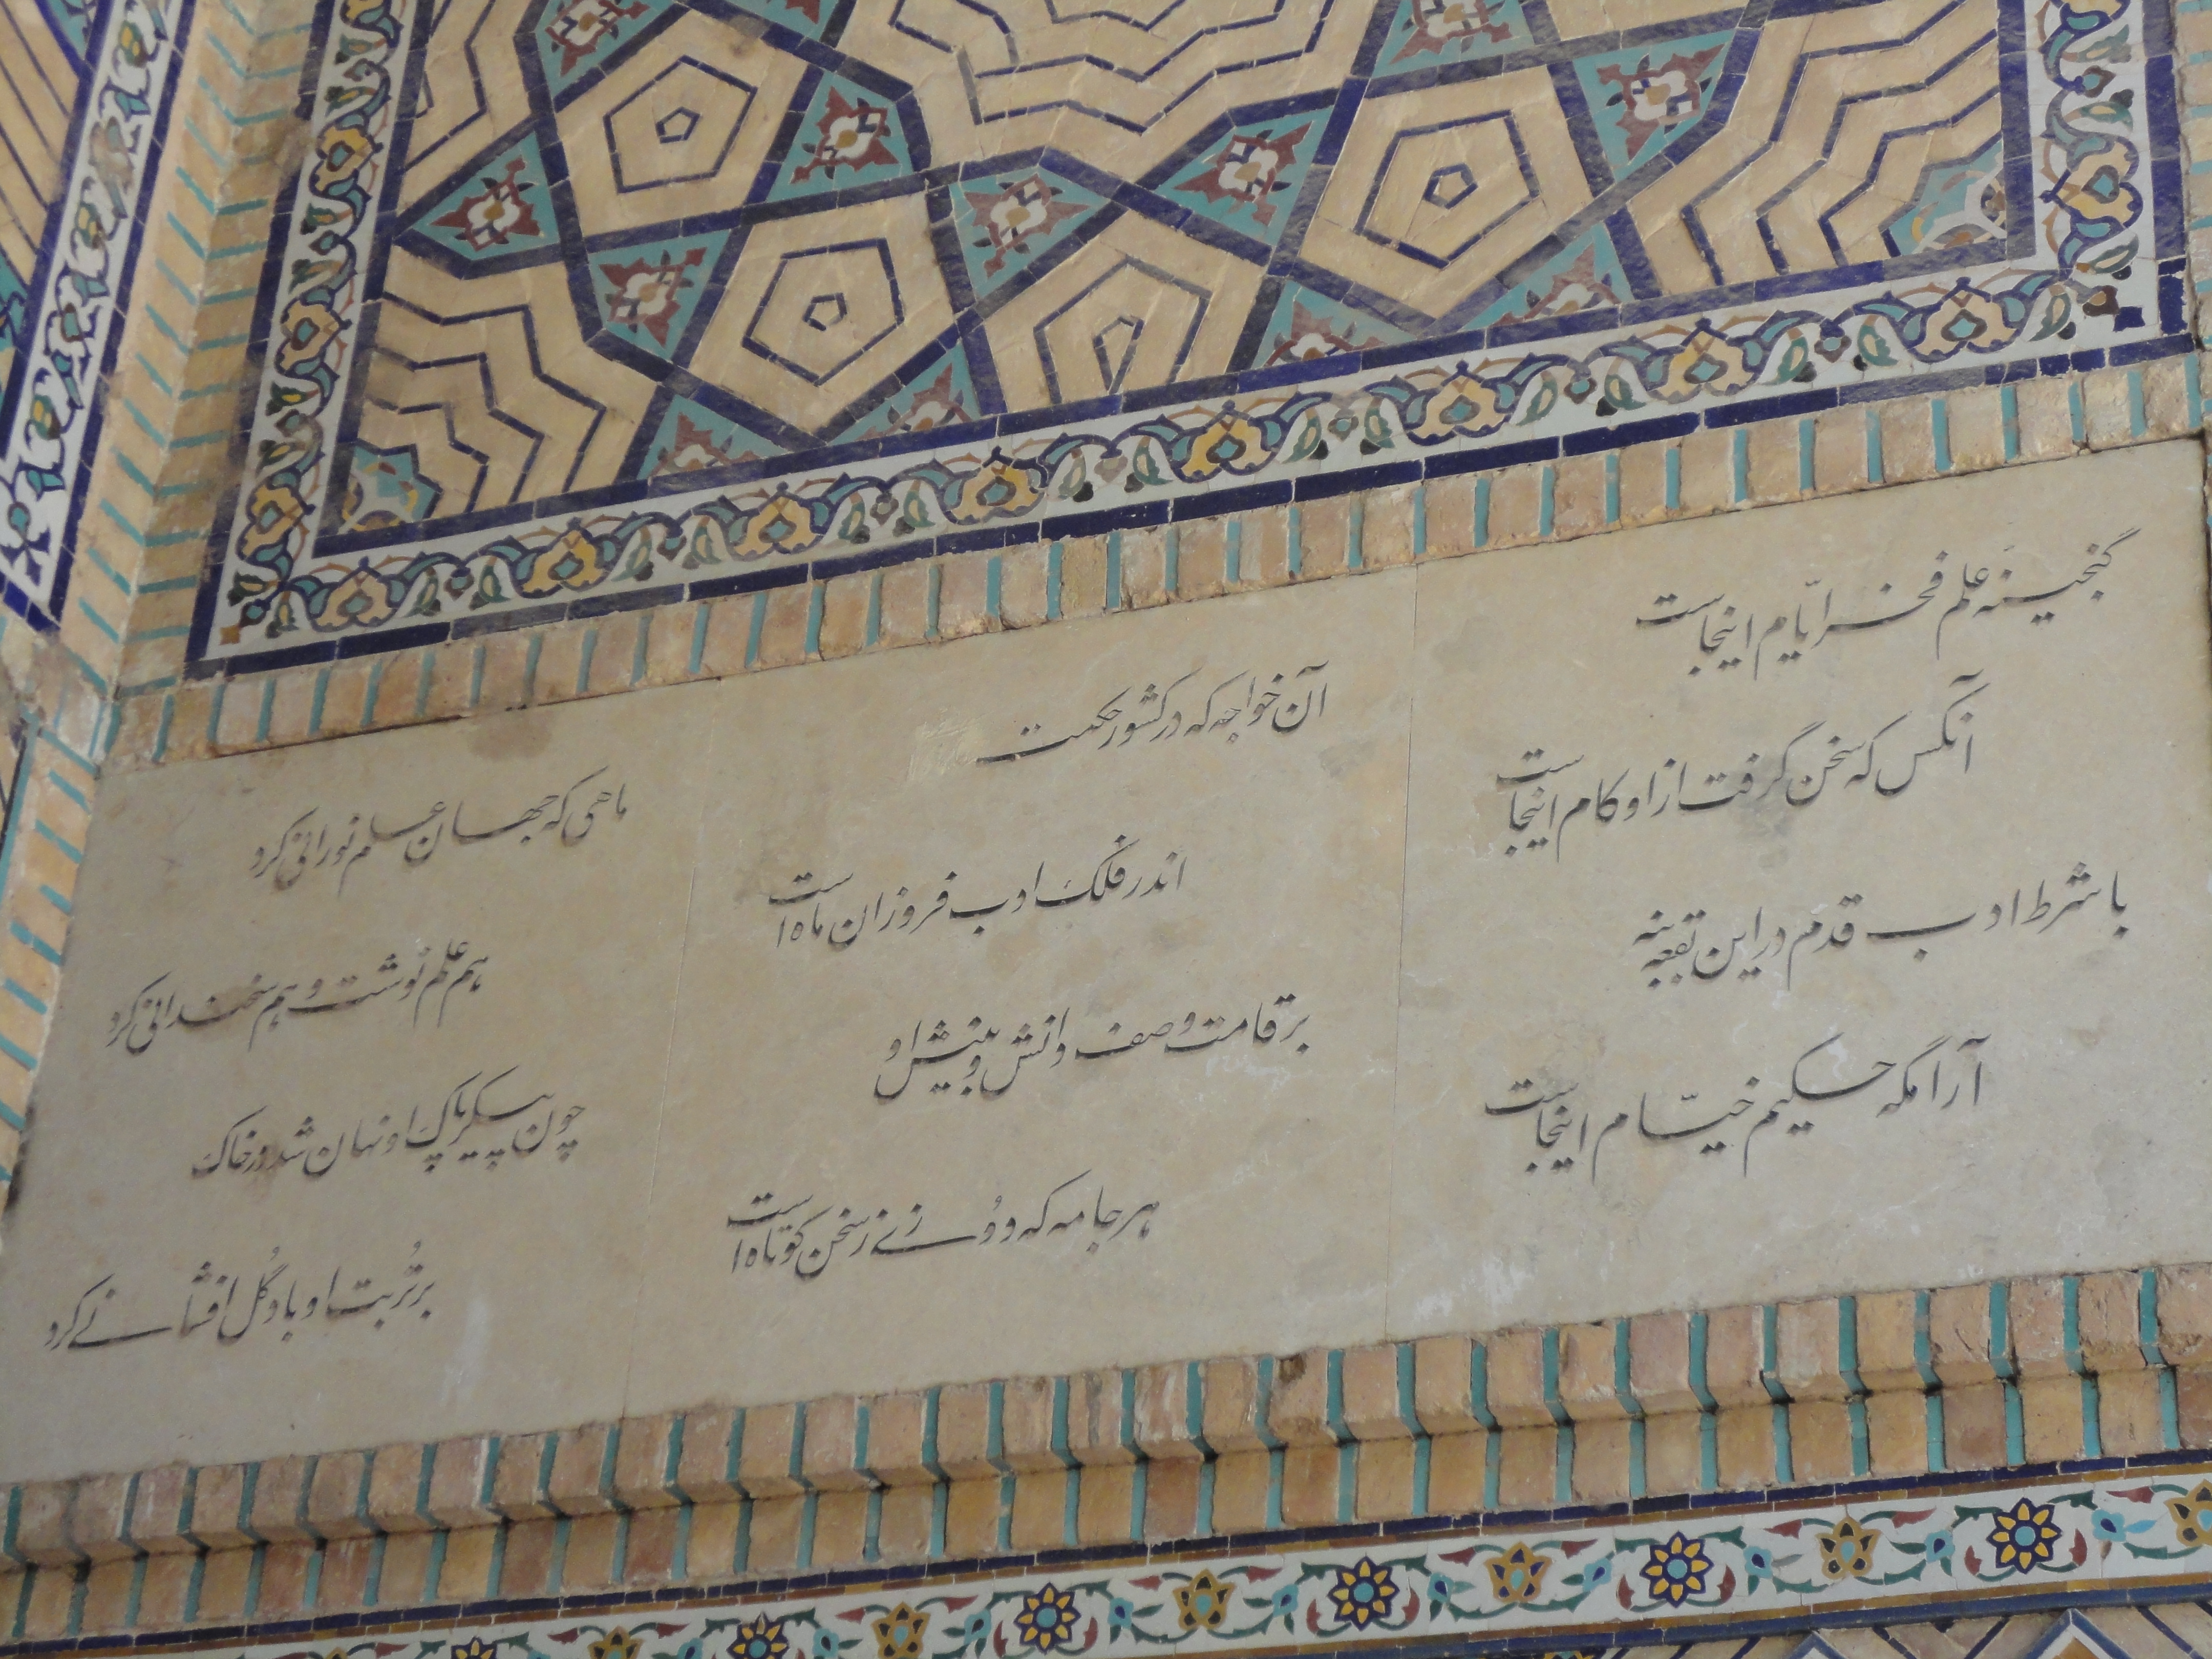 گنجینه علم فخر ایّام اینجاست
آنکس که سخن گرفت از او کام اینجاست
با شرط ادب قدم در این بقعه بنه
آرامگه حکیم خیّام اینجاست
آن خواجه که در کشور حکمت
اندر فلک ادب فروزان ماه است
بر قامت وصف دانش و بینش او
هر جامه که دوُزی ز سخن کوتاه است
ماهی که جهان علم نورانی کرد
هم علم نوشت و هم سخندانی کرد
چون پیکر پاک او نهان شد در خاک
بر تُربت او باد گُل افشانی کرد